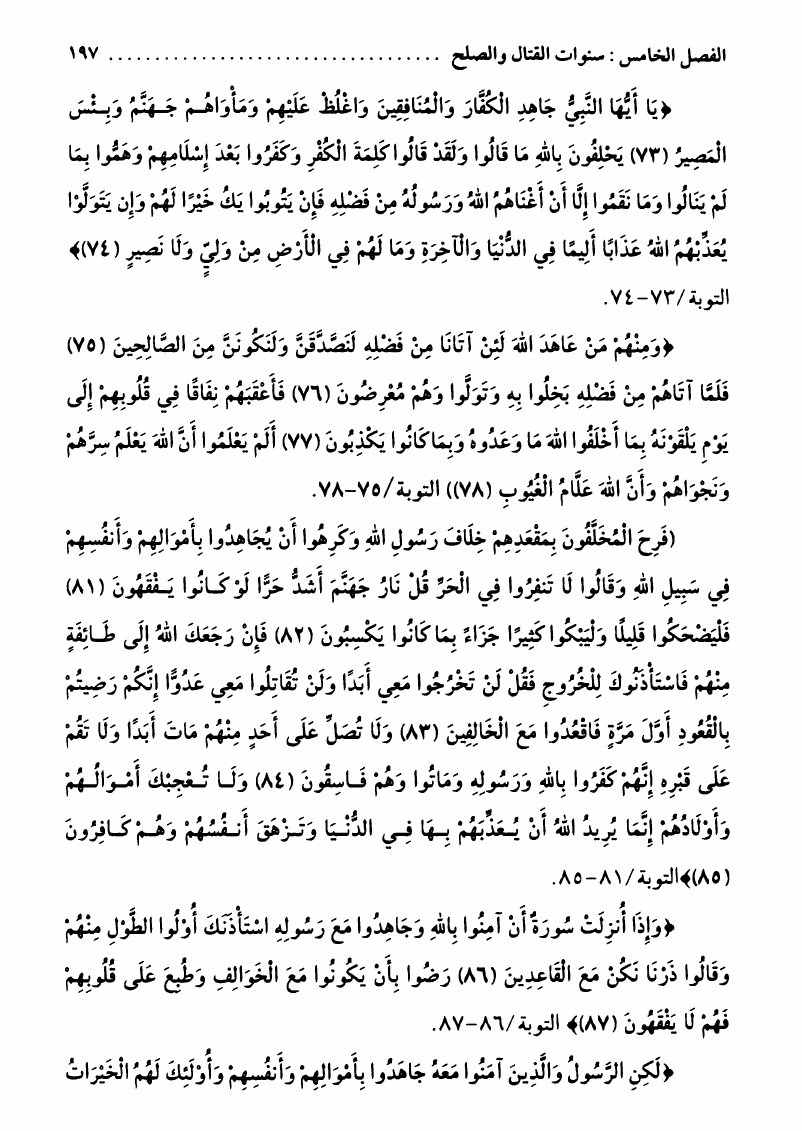 الفصل الخامس : سنوات القتال والصلح ................................... ١٩٧
﴿يَا أَيُّهَا النَّبِيُّ جَاهِدِ الْكُفَّارَ وَالْمُنَافِقِينَ وَاغْلُظْ عَلَيْهِمْ وَمَأْوَاهُـمْ جَـهَنَّمُ وَبِـئْسَ
الْمَصِيرُ (٧٣) يَحْلِفُونَ بِاللهِ مَا قَالُوا وَلَقَدْ قَالُوا كَلِمَةَ الْكُفْرِ وَكَفَرُوا بَعْدَ إِسْلَامِهِمْ وَهَمُّوا بِمَا
لَمْ يَنَالُوا وَمَا نَقَمُوا إِلَّا أَنْ أَغْنَاهُمُ اللهُ وَرَسُولُهُ مِنْ فَضْلِهِ فَإِنْ يَتُوبُوا يَكُ خَيْرًا لَهُمْ وَإِن يَتَوَلَّوْا
يُعَذِّبْهُمُ اللهُ عَذَابًا أَلِيمًا فِي الدُّنْيَا وَالْآخِرَةِ وَمَا لَهُمْ فِي الْأَرْضِ مِنْ وَلِيٍّ وَلَا نَصِيرٍ (٧٤)﴾
التوبة/٧٣-٧٤.
﴿وَمِنْهُمْ مَنْ عَاهَدَ اللهَ لَئِنْ آتَانَا مِنْ فَضْلِهِ لَنَصَّدَّقَنَّ وَلَنَكُونَنَّ مِنَ الصَّالِحِينَ (٧٥)
فَلَمَّا آتَاهُمْ مِنْ فَضْلِهِ بَخِلُوا بِهِ وَتَوَلَّوا وَهُمْ مُعْرِضُونَ (٧٦) فَأَعْقَبَهُمْ نِفَاقًا فِي قُلُوبِهِمْ إِلَى
يَوْمِ يَلْقَوْنَهُ بِمَا أَخْلَفُوا اللهَ مَا وَعَدُوهُ وَبِمَا كَانُوا يَكْذِبُونَ (٧٧) أَلَمْ يَعْلَمُوا أَنَّ اللهَ يَعْلَمُ سِرَّهُمْ
وَنَجْوَاهُمْ وَأَنَّ اللهَ عَلَّامُ الْغُيُوبِ (٧٨)) التوبة/٧٥-٧٨.
(فَرِحَ الْمُخَلَّفُونَ بِمَقْعَدِهِمْ خِلَافَ رَسُولِ اللهِ وَكَرِهُوا أَنْ يُجَاهِدُوا بِأَمْوَالِهِمْ وَأَنفُسِهِمْ
فِي سَبِيلِ اللهِ وَقَالُوا لَا تَنفِرُوا فِي الْحَرِّ قُلْ نَارُ جَهَنَّمَ أَشَدُّ حَرًّا لَوْ كَـانُوا يَـفْقَهُونَ (٨١)
فَلْيَضْحَكُوا قَلِيلًا وَلْيَبْكُوا كَثِيرًا جَزَاءً بِمَا كَانُوا يَكْسِبُونَ (٨٢) فَإِنْ رَجَعَكَ اللهُ إِلَى طَـائِفَةٍ
مِنْهُمْ فَاسْتَأْذَنُوكَ لِلْخُرُوجِ فَقُلْ لَنْ تَخْرُجُوا مَعِي أَبَدًا وَلَنْ تُقَاتِلُوا مَعِي عَدُوًّا إِنَّكُمْ رَضِيتُمْ
بِالْقُعُودِ أَوَّلَ مَرَّةٍ فَاقْعُدُوا مَعَ الْخَالِفِينَ (٨٣) وَلَا تُصَلِّ عَلَى أَحَدٍ مِنْهُمْ مَاتَ أَبَدًا وَلَا تَقُمْ
عَلَى قَبْرِهِ إِنَّهُمْ كَفَرُوا بِاللهِ وَرَسُولِهِ وَمَاتُوا وَهُمْ فَـاسِقُونَ (٨٤) وَلَـا تُـعْجِبْكَ أَمْـوَالُـهُمْ
وَأَوْلَادُهُمْ إِنَّمَا يُرِيدُ اللهُ أَنْ يُـعَذِّبَهُمْ بِـهَا فِـي الدُّنْـيَا وَتَـزْهَقَ أَنـفُسُهُمْ وَهُـمْ كَـافِرُونَ
(٨٥)﴾التوبة/٨١-٨٥.
﴿وَإِذَا أُنزِلَتْ سُورَةٌ أَنْ آمِنُوا بِاللهِ وَجَاهِدُوا مَعَ رَسُولِهِ اسْتَأْذَنَكَ أُوْلُوا الطَّوْلِ مِنْهُمْ
وَقَالُوا ذَرْنَا نَكُنْ مَعَ الْقَاعِدِينَ (٨٦) رَضُوا بِأَنْ يَكُونُوا مَعَ الْخَوَالِفِ وَطُبِعَ عَلَى قُلُوبِهِمْ
فَهُمْ لَا يَفْقَهُونَ (٨٧)﴾ التوبة/٨٦-٨٧.
﴿لَكِنِ الرَّسُولُ وَالَّذِينَ آمَنُوا مَعَهُ جَاهَدُوا بِأَمْوَالِهِمْ وَأَنفُسِهِمْ وَأُوْلَئِكَ لَهُمُ الْخَيْرَاتُ